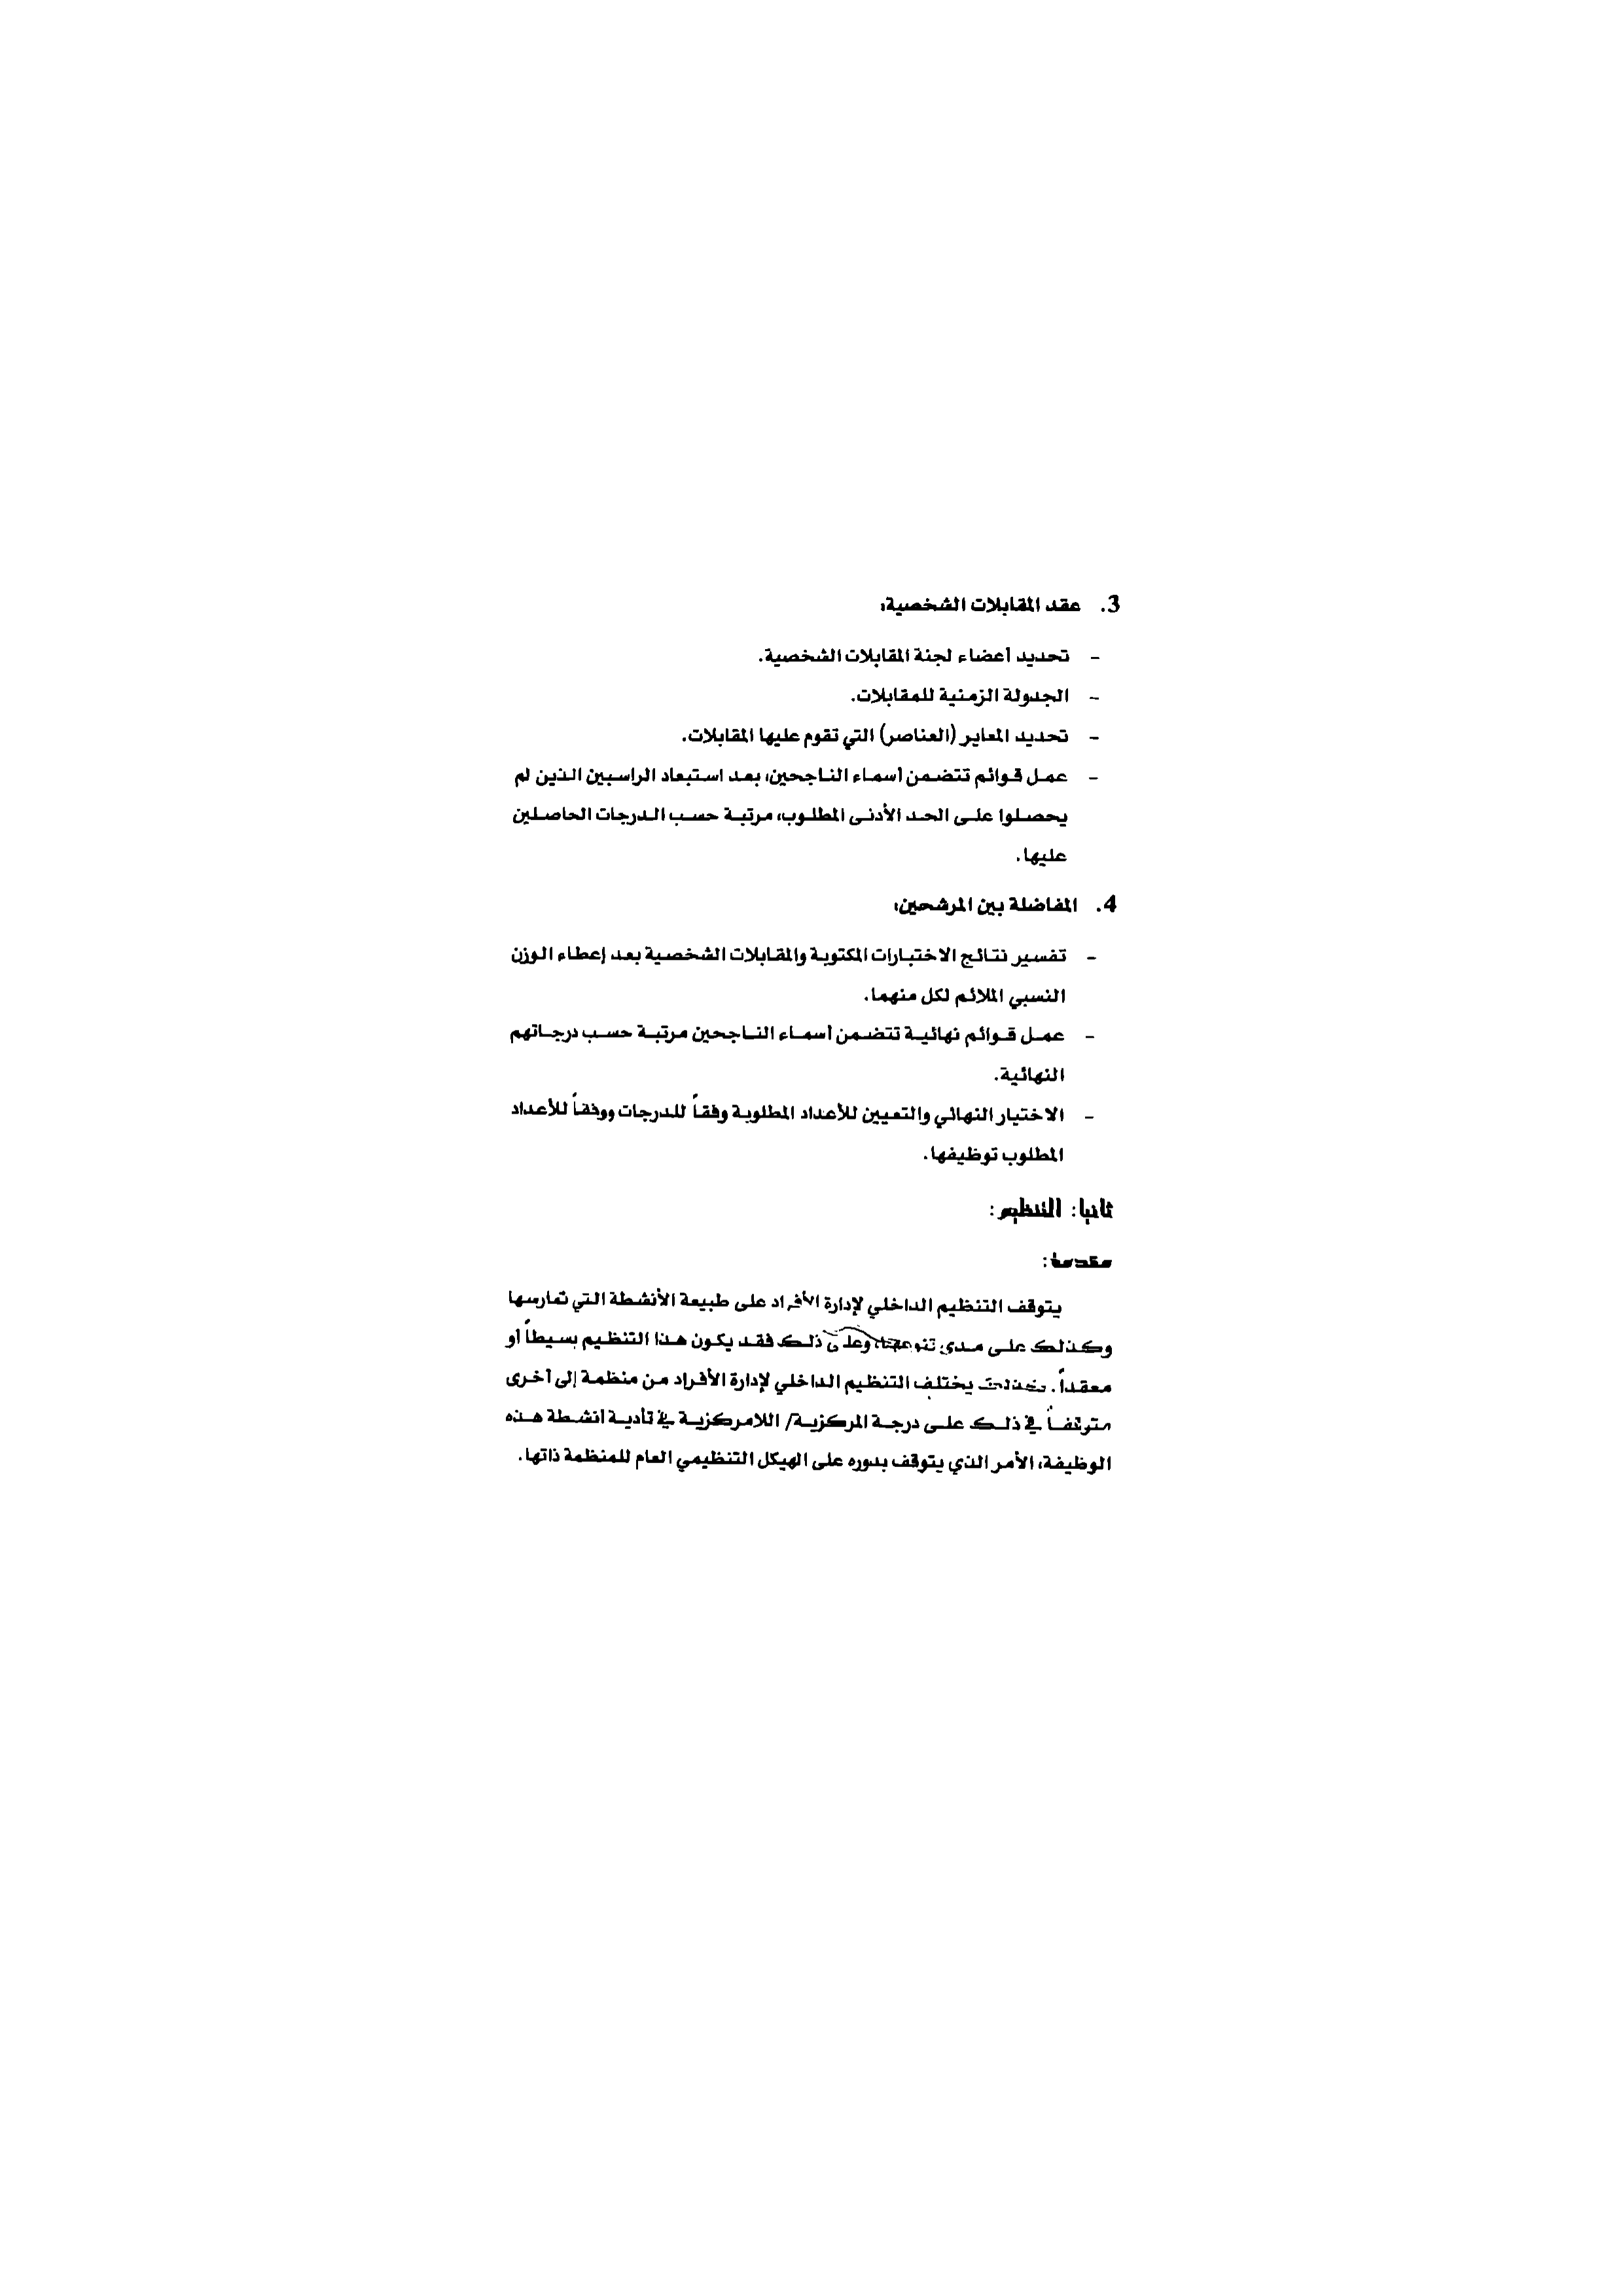 3. عقد المقابلات الشخصية:
- تحديد أعضاء لجنة المقابلات الشخصية.
- الجدولة الزمنية للمقابلات.
- تحديد المعاير (العناصر) التي تقوم عليها المقابلات.
- عمل قوائم تتضمن أسماء الناجحين، بعد استبعاد الراسبين الذين لم
يحصلوا على الحد الأدنى المطلوب، مرتبة حسب الدرجات الحاصلين
عليها.
4. المفاضلة بين المرشحين:
- تفسير نتائج الاختبارات المكتوبة والمقابلات الشخصية بعد إعطاء الوزن
النسبي الملائم لكل منهما.
- عمل قوائم نهائية تتضمن أسماء الناجحين مرتبة حسب درجاتهم
النهائية.
- الاختيار النهائي والتعيين للأعداد المطلوبة وفقاً للدرجات ووفقاً للأعداد
المطلوب توظيفها.
ثانيا: التنظيم:
مقدمة:
يتوقف التنظيم الداخلي لإدارة الأفراد على طبيعة الأنشطة التي تمارسها
وكذلك على مدى تنوعها، وعلى ذلك فقد يكون هذا التنظيم بسيطاً أو
معقداً. كذلك يختلف التنظيم الداخلي لإدارة الأفراد من منظمة إلى أخرى
متوقفاً في ذلك على درجة المركزية/ اللامركزية في تأدية أنشطة هذه
الوظيفة، الأمر الذي يتوقف بدوره على الهيكل التنظيمي العام للمنظمة ذاتها.